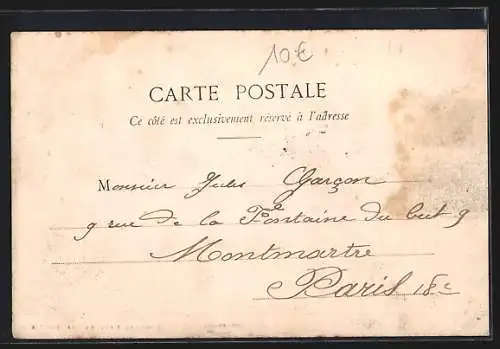 10€
CARTE POSTALE
Ce côté est exclusivement réservé à l'adresse
Monsieur Jules Garçon
9 rue de la Fontaine du but 9
Montmartre
Paris 18e